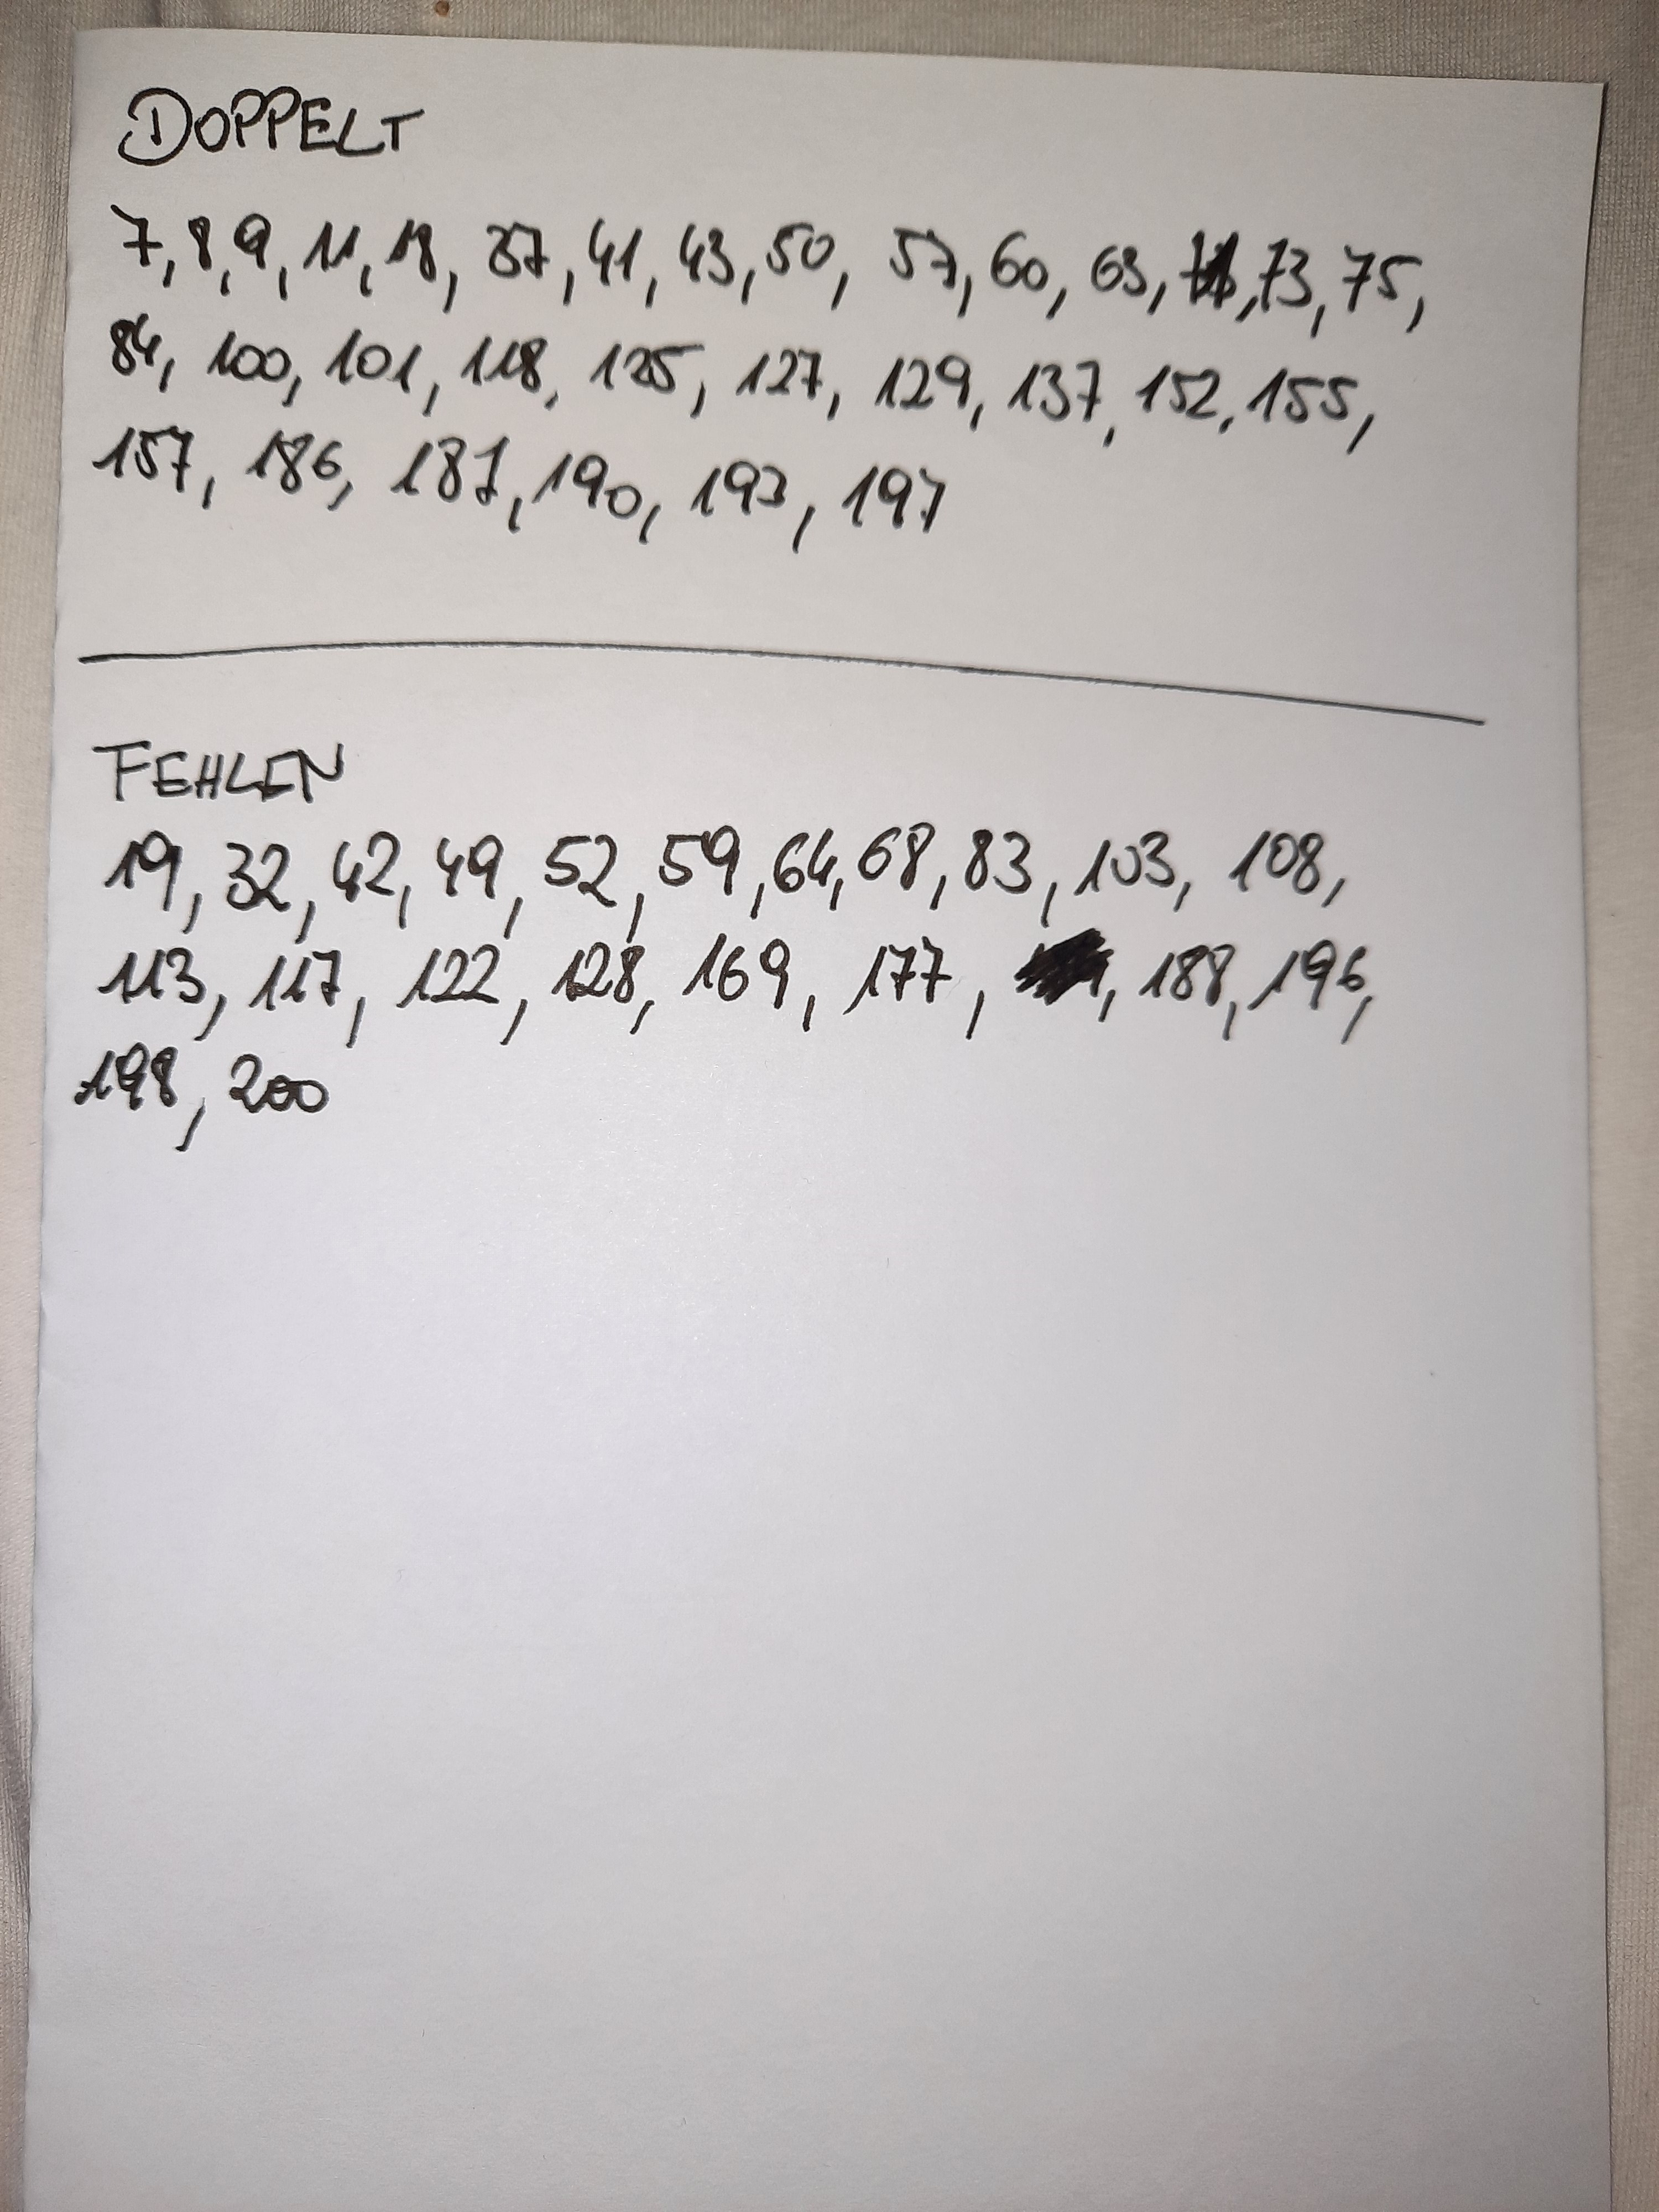 DOPPELT
7, 8, 9, 11, 18, 37, 41, 43, 50, 57, 60, 63, 73, 75,
84, 100, 101, 118, 125, 127, 129, 137, 152, 155,
157, 186, 187, 190, 193, 197
FEHLEN
19, 32, 42, 49, 52, 59, 64, 68, 83, 103, 108,
113, 117, 122, 128, 169, 177, 188, 196,
198, 200